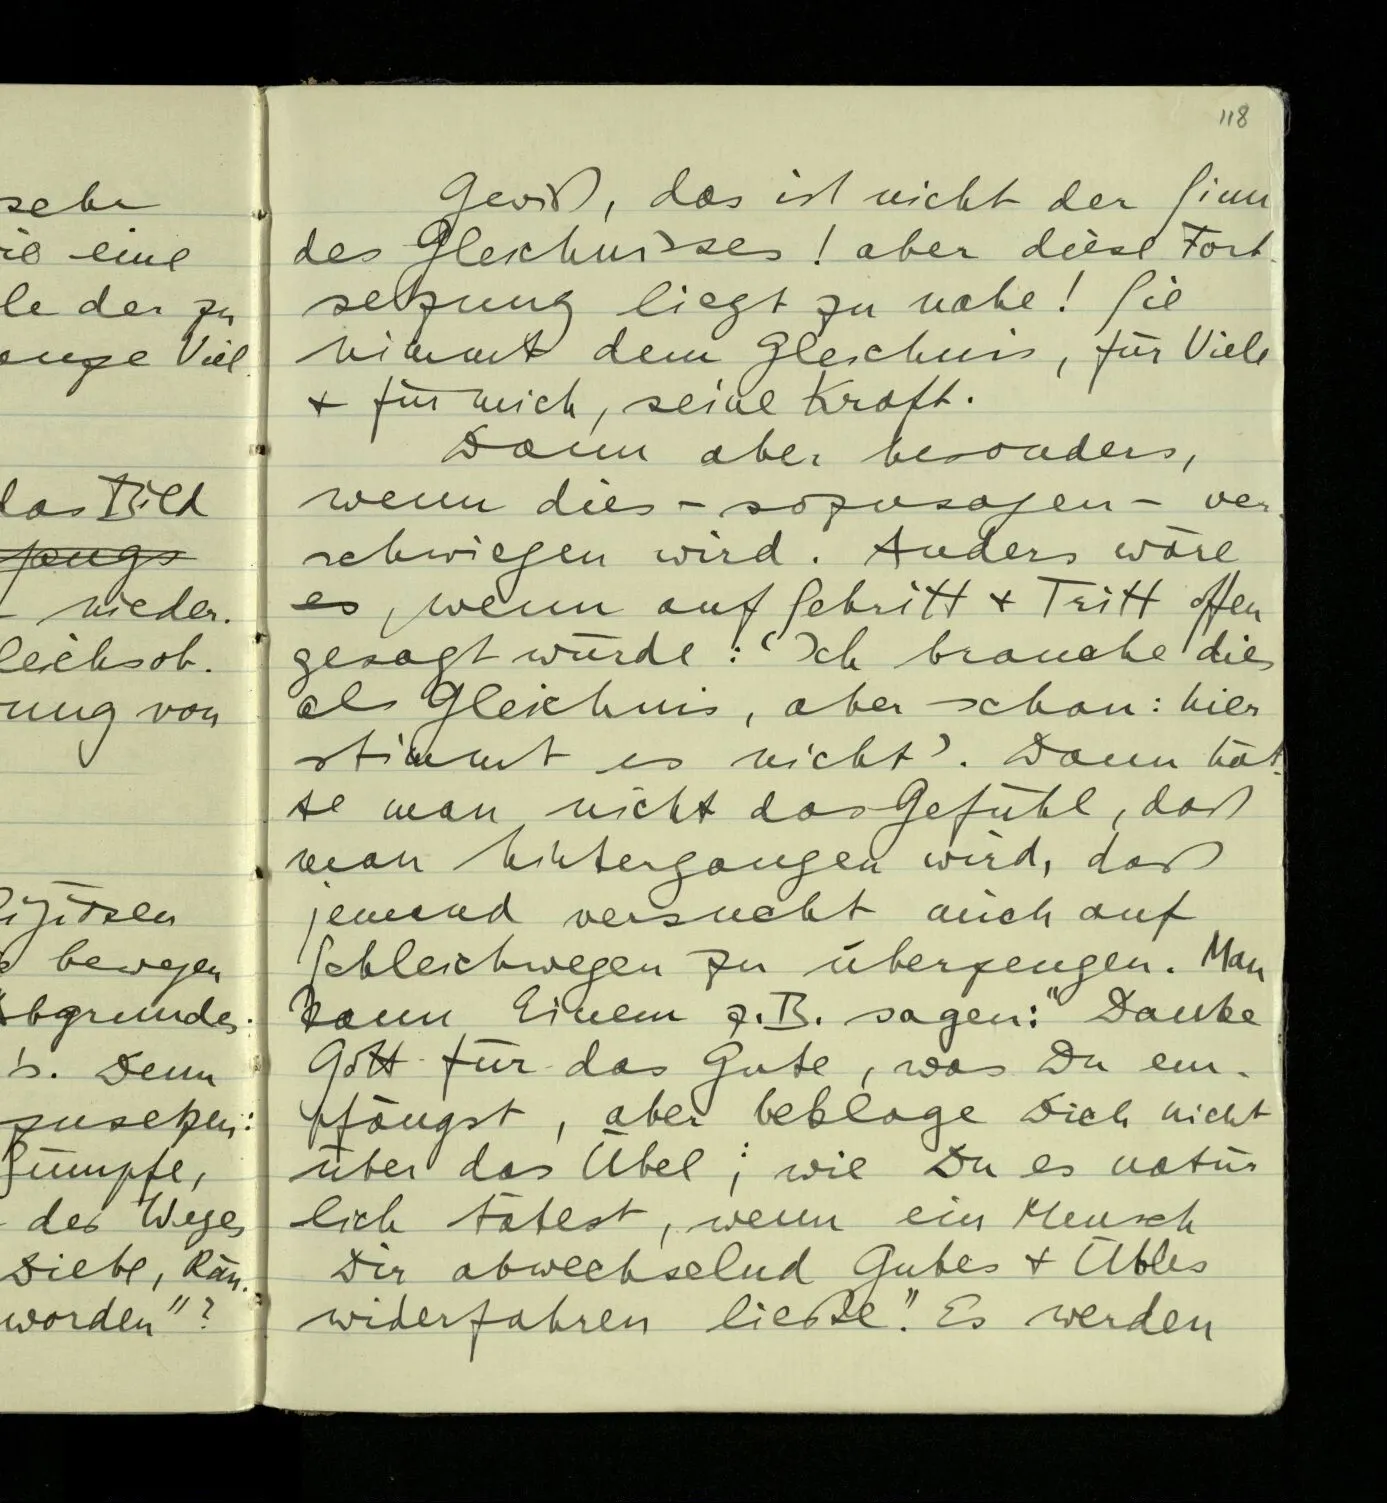 sehr
wie eine
le der zu
ange Viel
das Bild
nieder.
leichsob.
rung von
ligiösen
bewegen
Abgrundes.
's. Denn
zusetzen:
Sümpfe,
des Weges
Diebe, Räu.
worden"?
118
Gewiß, das ist nicht der Sinn
des Gleichnisses! aber diese Fort-
setzung liegt zu nahe! Sie
nimmt dem Gleichnis, für Viele
+ für mich, seine Kraft.
Dann aber besonders,
wenn dies – sozusagen – ver-
schwiegen wird. Anders wäre
es, wenn auf Schritt + Tritt offen
gesagt würde: 'Ich brauche dies
als Gleichnis, aber schau: hier
stimmt es nicht'. Dann hät-
te man nicht das Gefühl, daß
man hintergangen wird, daß
jemand versucht mich auf
Schleichwegen zu überzeugen. Man
kann Einem z.B. sagen: "Danke
Gott für das Gute, was Du em-
pfängst, aber beklage Dich nicht
über das Übel; wie Du es natür
lich tätest, wenn ein Mensch
Dir abwechselnd Gutes + Übles
widerfahren ließe." Es werden